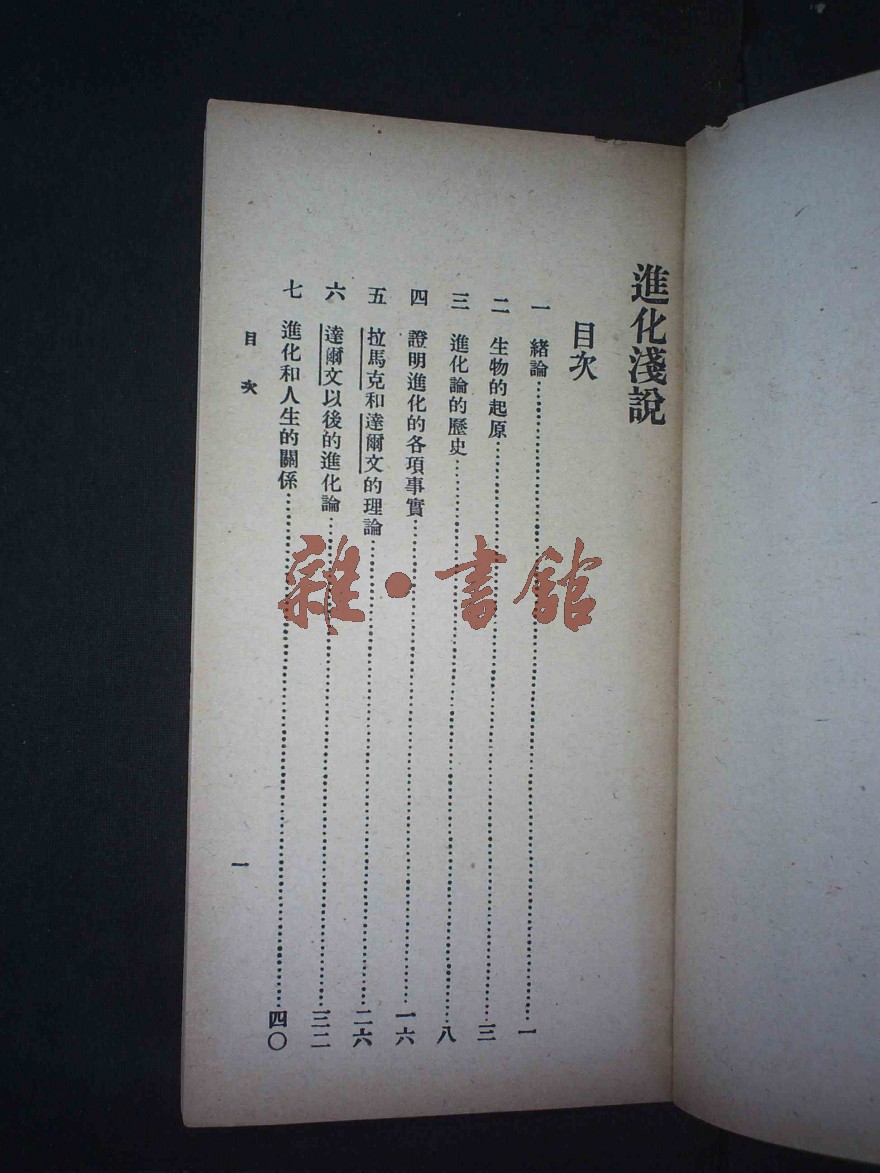 進化淺說
目次
一 緒論……一
二 生物的起原……三
三 進化論的歷史……八
四 證明進化的各項事實……一六
五 拉馬克和達爾文的理論……二六
六 達爾文以後的進化論……三二
七 進化和人生的關係……四〇
目次
一
雜·書館